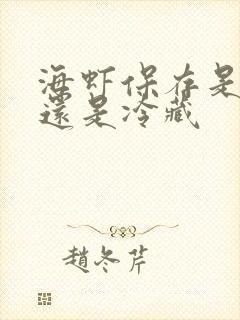 海虾保存是
還是冷藏
趙冬芹